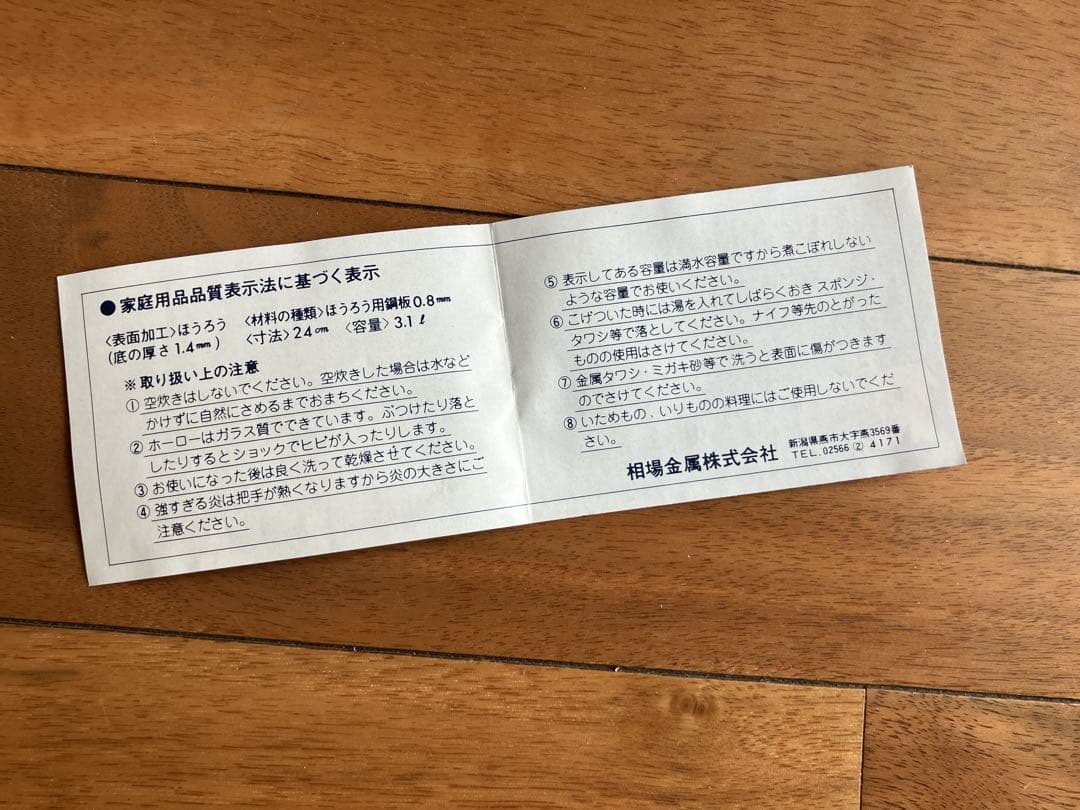 ●家庭用品品質表示法に基づく表示
〈表面加工〉ほうろう 〈材料の種類〉ほうろう用鋼板0.8mm
(底の厚さ1.4mm) 〈寸法〉24cm 〈容量〉3.1ℓ
※取り扱い上の注意
① 空炊きはしないでください。空炊きした場合は水など
かけずに自然にさめるまでおまちください。
② ホーローはガラス質でできています。ぶつけたり落と
したりするとショックでヒビが入ったりします。
③ お使いになった後は良く洗って乾燥させてください。
④ 強すぎる炎は把手が熱くなりますから炎の大きさにご
注意ください。
⑤ 表示してある容量は満水容量ですから煮こぼれしない
ような容量でお使いください。
⑥ こげついた時には湯を入れてしばらくおきスポンジ・
タワシ等で落としてください。ナイフ等先のとがった
ものの使用はさけてください。
⑦ 金属タワシ・ミガキ砂等で洗うと表面に傷がつきます
のでさけてください。
⑧ いためもの、いりものの料理にはご使用しないでくだ
さい。
相場金属株式会社 新潟県燕市大字燕3569番
TEL. 02566 ② 4171